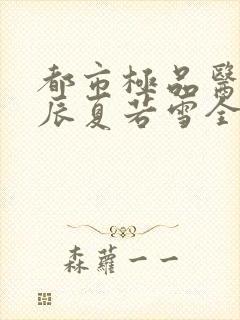 都市極品醫
辰夏若雪全
森蘿一一